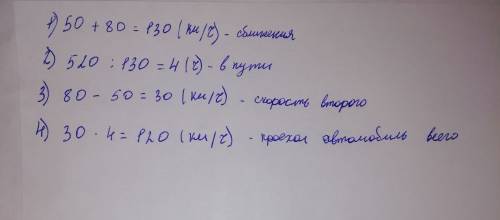 1) 50 + 80 = 130 (км/ч) - сближения
2) 520 : 130 = 4 (ч) - в пути
3) 80 - 50 = 30 (км/ч) - скорость второго
4) 30 · 4 = 120 (км/ч) - проехал автомобиль всего